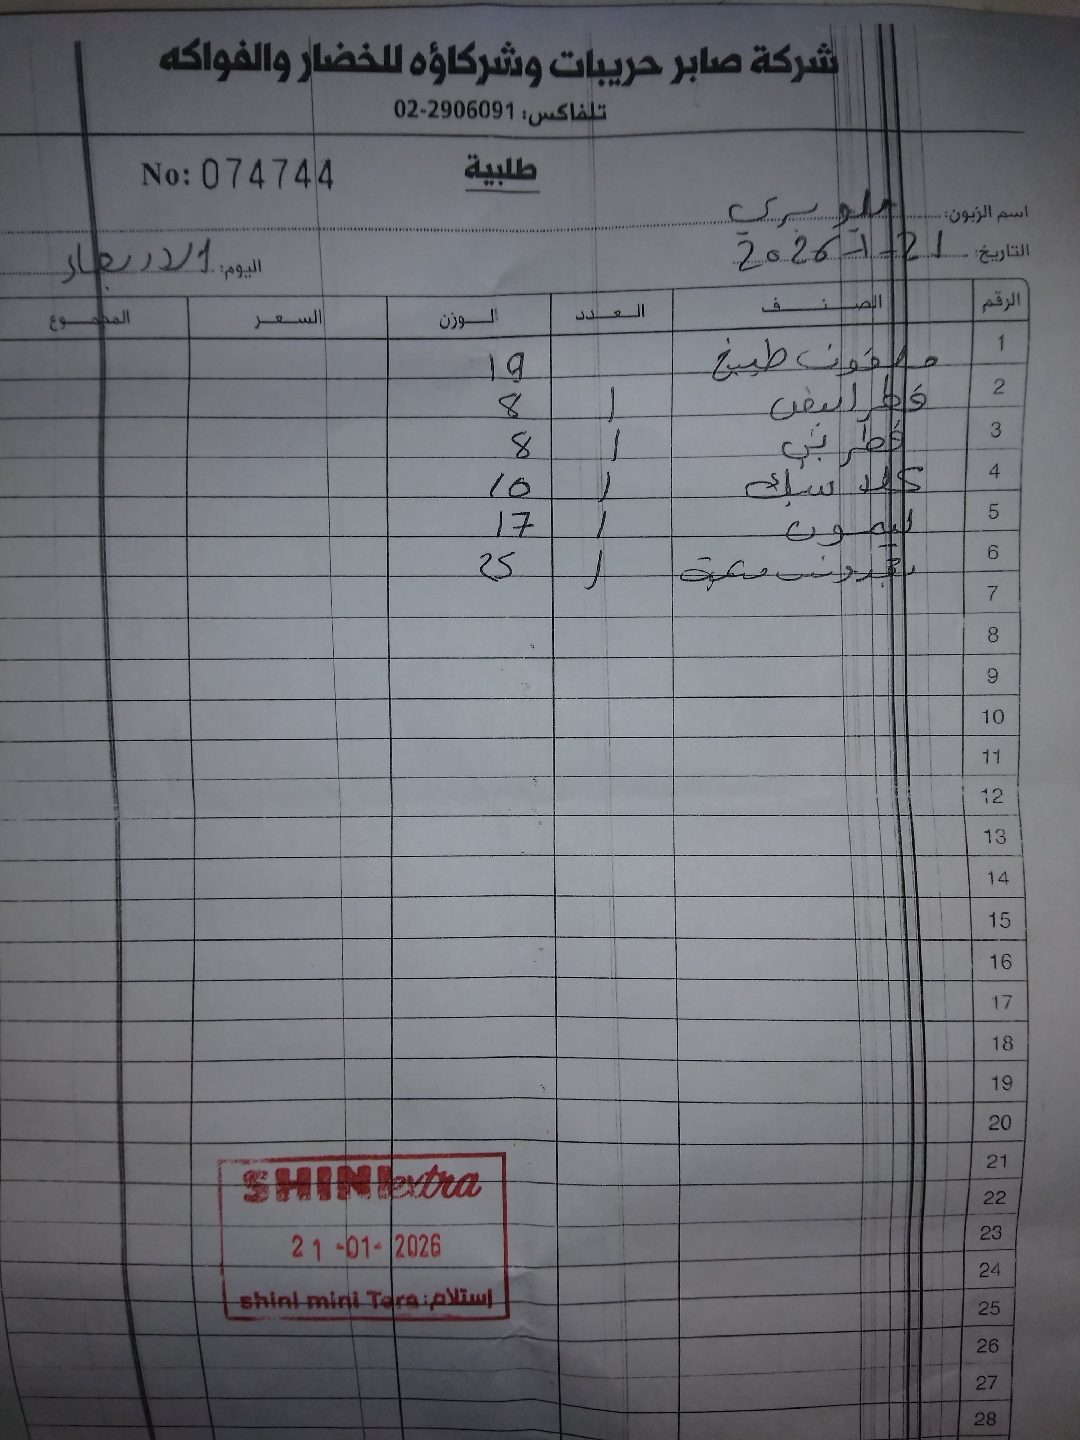 شركة صابر حريبات وشركاؤه للخضار والفواكه
تلفاكس: 02-2906091
طلبية
No: 074744
اسم الزبون: بيري
التاريخ: 21-1-2026
اليوم: الاربعاء
الرقم الصنف العدد الوزن السعر المجموع
1 ملفوف طبيخ 19
2 فطر ابيض 1 8
3 فطر بني 1 8
4 1 10
5 ليمون 1 17
6 بقدونس 1 25
7
8
9
10
11
12
13
14
15
16
17
18
19
20
21
22
23
24
25
26
27
28
SHINI extra
21-01-2026
استلام: shini mini Tara